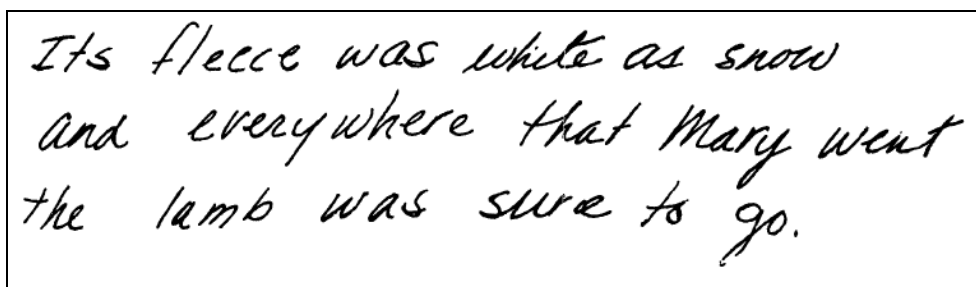 Its fleece was white as snow
and everywhere that Mary went
the lamb was sure to go.